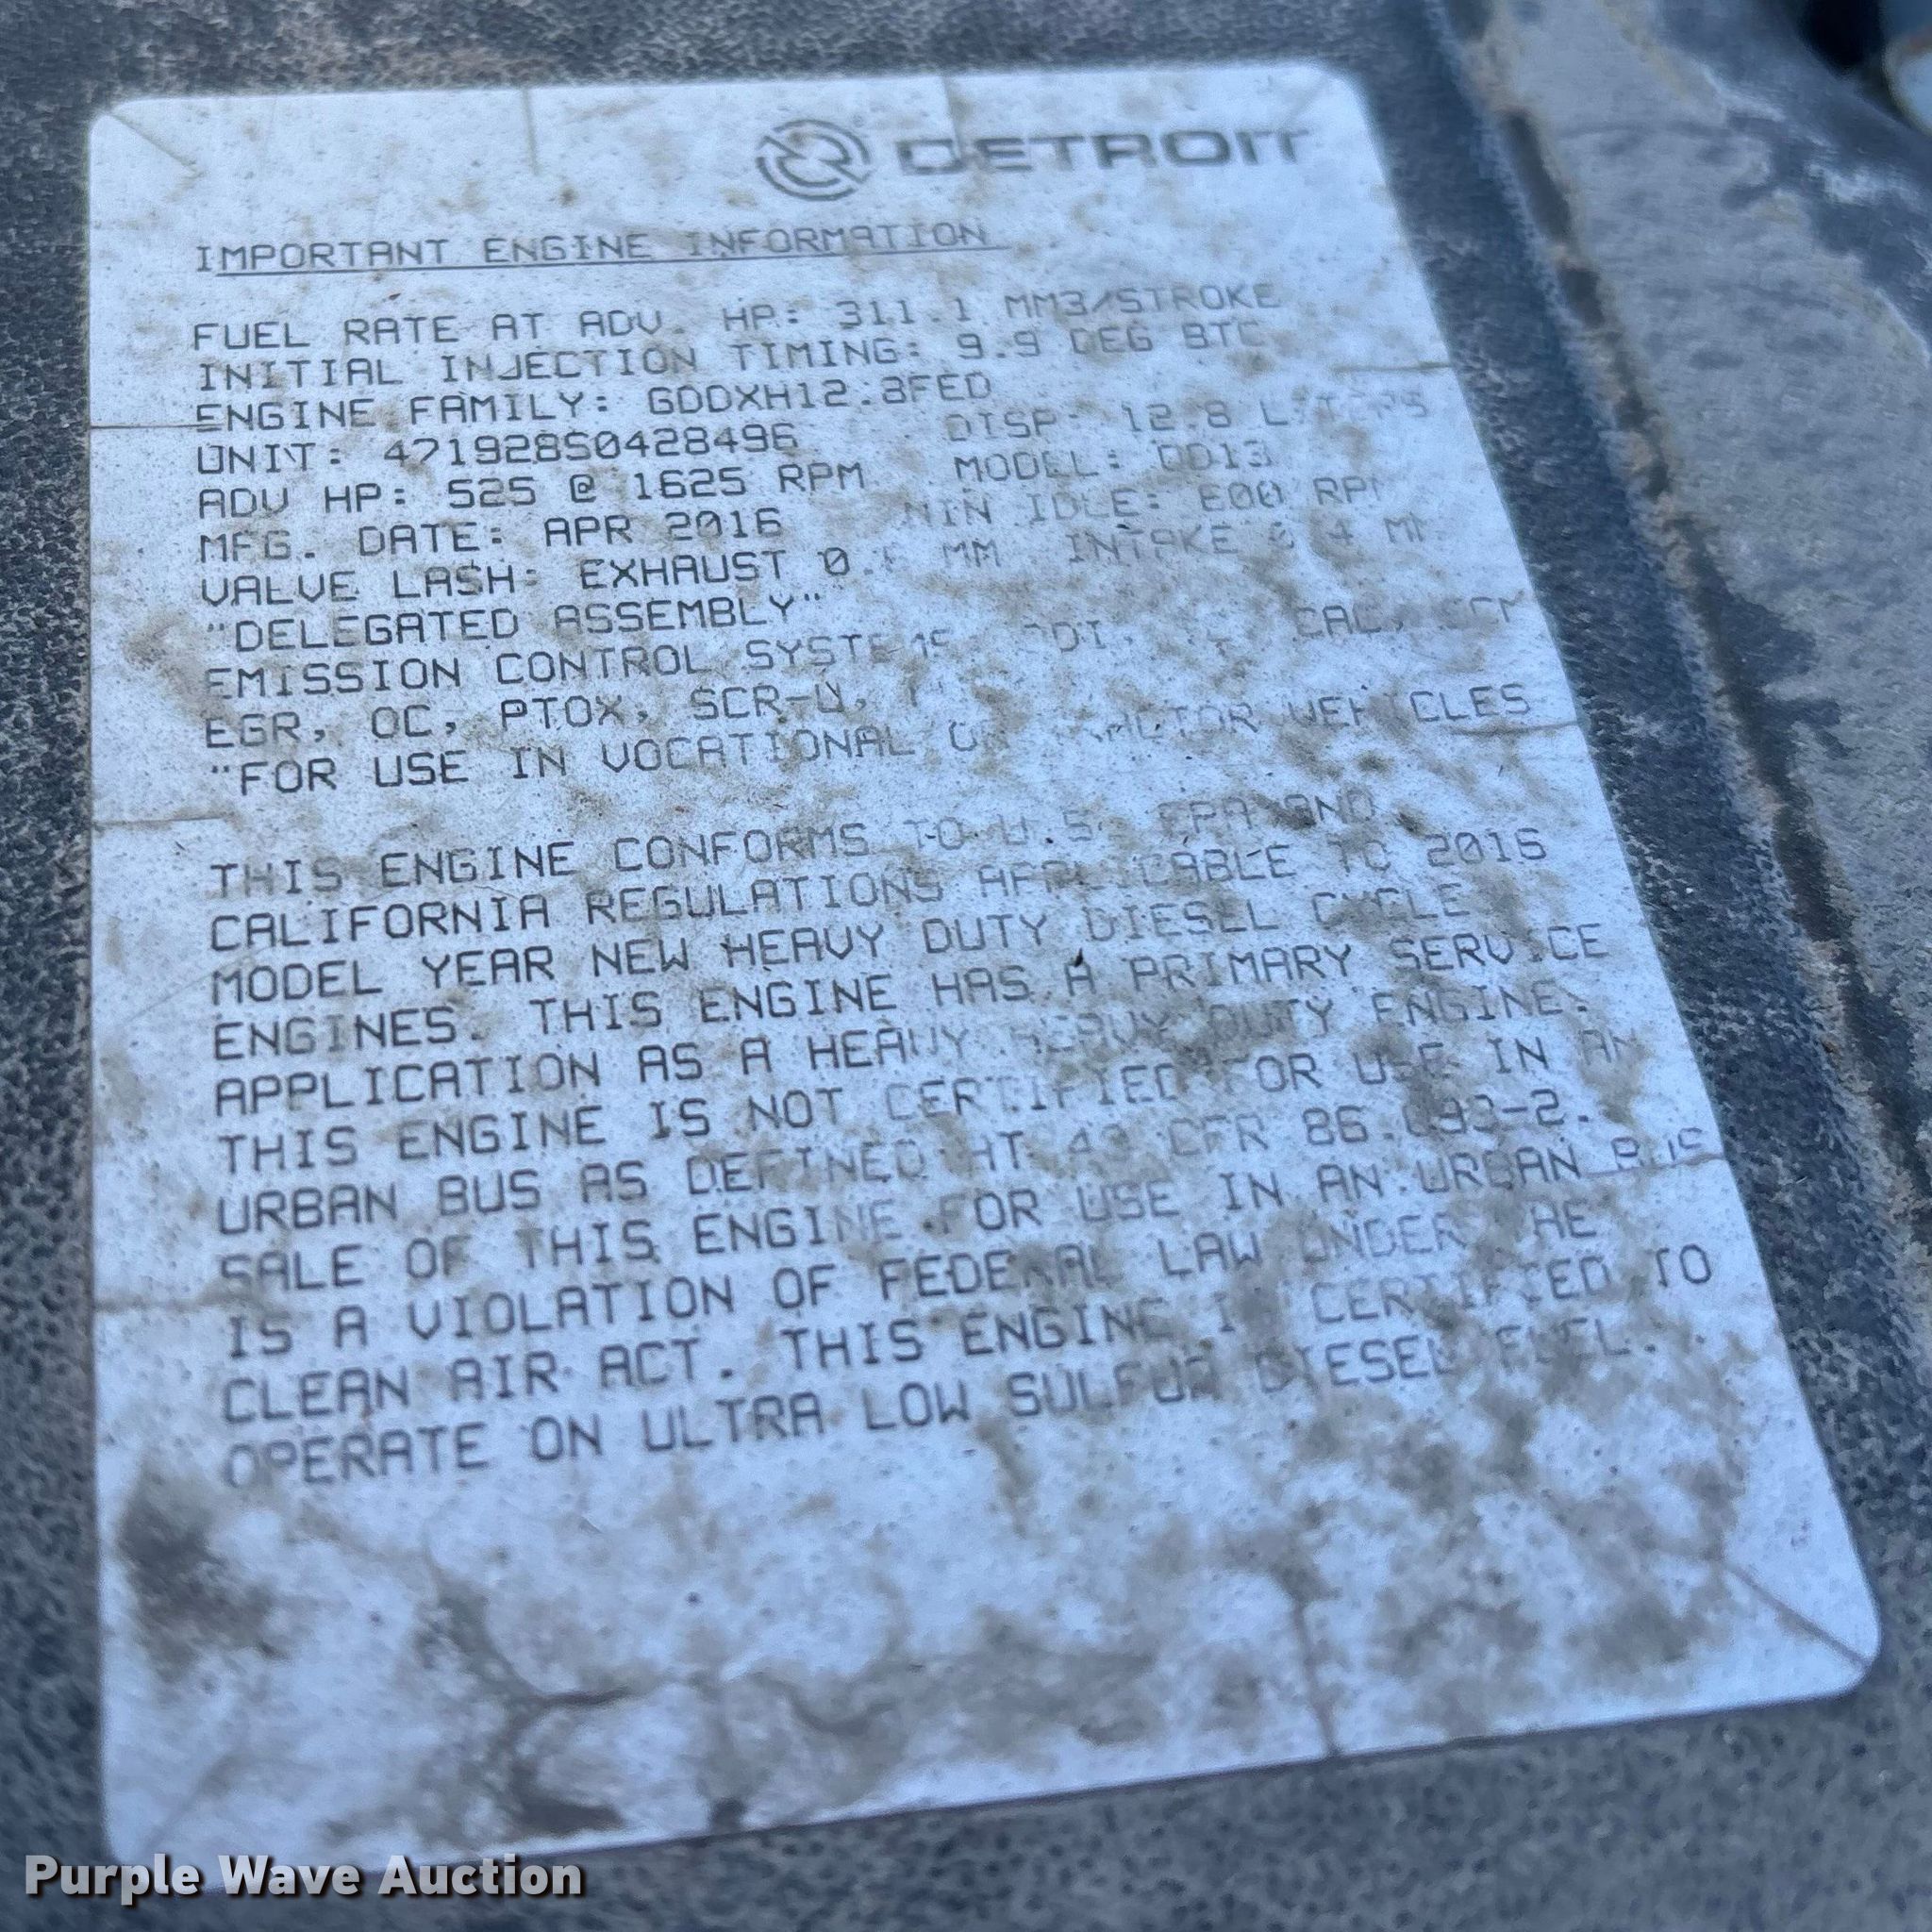 DETROIT
IMPORTANT ENGINE INFORMATION
FUEL RATE AT ADV. HP: 311.1 MM3/STROKE
INITIAL INJECTION TIMING: 9.9 DEG BTC
ENGINE FAMILY: GDDXH12.8FED
UNIT: 471928S0428496 DISP: 12.8
ADV HP: 525 @ 1625 RPM MODEL: DD13
MFG. DATE: APR 2016 MIN IDLE: 600 RPM
VALVE LASH: EXHAUST MM INTAKE
"DELEGATED ASSEMBLY"
EMISSION CONTROL SYSTEMS
EGR, OC, PTOX, SCR-U,
"FOR USE IN VOCATIONAL OR TRACTOR VEHICLES
THIS ENGINE CONFORMS TO U.S. EPA AND
CALIFORNIA REGULATIONS APPLICABLE TO 2016
MODEL YEAR NEW HEAVY DUTY DIESEL CYCLE
ENGINES. THIS ENGINE HAS A PRIMARY SERVICE
APPLICATION AS A HEAVY HEAVY DUTY ENGINE.
THIS ENGINE IS NOT CERTIFIED FOR USE IN AN
URBAN BUS AS DEFINED AT 40 CFR 86.093-2.
SALE OF THIS ENGINE FOR USE IN AN URBAN BUS
IS A VIOLATION OF FEDERAL LAW UNDER THE
CLEAN AIR ACT. THIS ENGINE IS CERTIFIED TO
OPERATE ON ULTRA LOW SULFUR DIESEL FUEL.
Purple Wave Auction